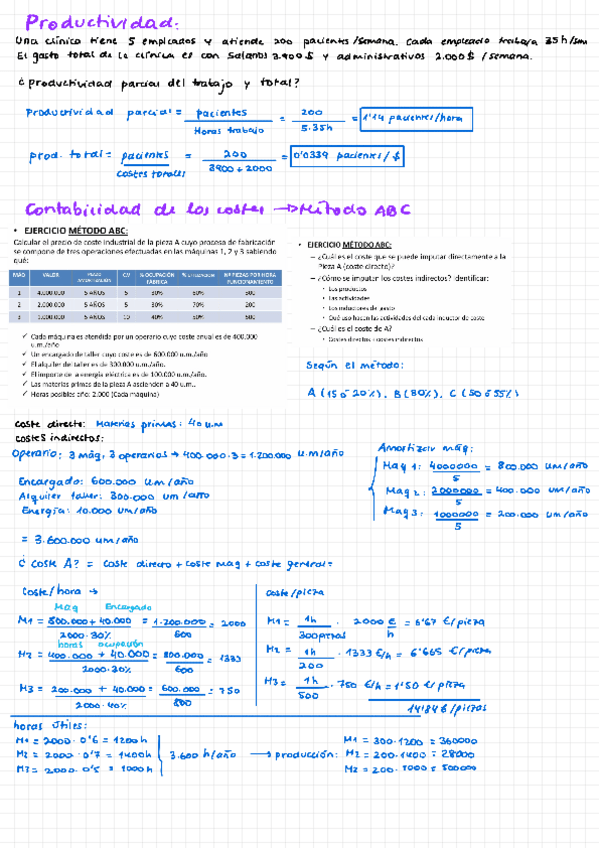 Productividad:
Una clínica tiene 5 empleados y atiende 200 pacientes/semana. Cada empleado trabaja 35h/sem
El gasto total de la clínica es con salarios 3.900$ y administrativos 2.000$ /semana.
¿productividad parcial del trabajo y total?
Productividad parcial = pacientes / Horas trabajo = 200 / 5·35h = 1'14 pacientes/hora
prod. total = pacientes / costes totales = 200 / 3900+2000 = 0'0339 pacientes/$
Contabilidad de los costes → Método ABC
• EJERCICIO MÉTODO ABC:
Calcular el precio de coste industrial de la pieza A cuyo proceso de fabricación
se compone de tres operaciones efectuadas en las máquinas 1, 2 y 3 sabiendo
qué:
MÁQ VALOR PLAZO AMORTIZACIÓN CV % OCUPACIÓN FÁBRICA % UTILIZACIÓN Nº PIEZAS POR HORA FUNCIONAMIENTO
1 4.000.000 5 AÑOS 5 30% 60% 300
2 2.000.000 5 AÑOS 5 30% 70% 200
3 1.000.000 5 AÑOS 10 40% 50% 500
✓ Cada máquina es atendida por un operario cuyo coste anual es de 400.000
u.m./año
✓ Un encargado de taller cuyo coste es de 600.000 u.m./año
✓ El alquiler del taller es de 300.000 u.m./año.
✓ El importe de la energía eléctrica es de 100.000 u.m./año.
✓ Las materias primas de la pieza A ascienden a 40 u.m..
✓ Horas posibles año: 2.000 (Cada máquina)
• EJERCICIO MÉTODO ABC:
– ¿Cuál es el coste que se puede imputar directamente a la
Pieza A (coste directo)?
– ¿Cómo se imputan los costes indirectos? Identificar:
• Los productos
• Las actividades
• Los inductores de gasto
• Qué uso hacen las actividades del cada inductor de coste
– ¿Cuál es el coste de A?
• Costes directos + costes indirectos
Según el método:
A (15 ó 20%). B (80%). C (50 ó 55%)
coste directo: Materias primas: 40 u.m
costes indirectos:
Operario: 3 máq, 3 operarios → 400.000·3 = 1.200.000 u.m/año
Encargado: 600.000 um/año
Alquiler taller: 300.000 um/año
Energía: 10.000 um/año
= 3.600.000 um/año
Amortizar máq:
Maq 1: 4000000 / 5 = 800.000 um/año
Maq 2: 2000000 / 5 = 400.000 um/año
Maq 3: 1000000 / 5 = 200.000 um/año
¿ Coste A? = coste directo + coste maq + coste general =
Coste/hora →
Maq Encargado
M1 = 800.000 + 40.000 / 2000·30% = 1.200.000 / 600 = 2000
horas ocupación
M2 = 400.000 + 40.000 / 2000·30% = 800.000 / 600 = 1333
M3 = 200.000 + 40.000 / 2000·40% = 600.000 / 800 = 750
coste/pieza
M1 = 1h / 300piezas · 2000 € / h = 6'67 €/pieza
M2 = 1h / 200 · 1333 €/h = 6'665 €/pieza
M3 = 1h / 500 · 750 €/h = 1'50 €/pieza
14'84 €/piezas
horas útiles:
M1 = 2000·0'6 = 1200h
M2 = 2000·0'7 = 1400h
M3 = 2000·0'5 = 1000h
3.600 h/año → producción:
M1 = 300·1200 = 360000
M2 = 200·1400 = 28000
M2 = 200·1000 = 500000